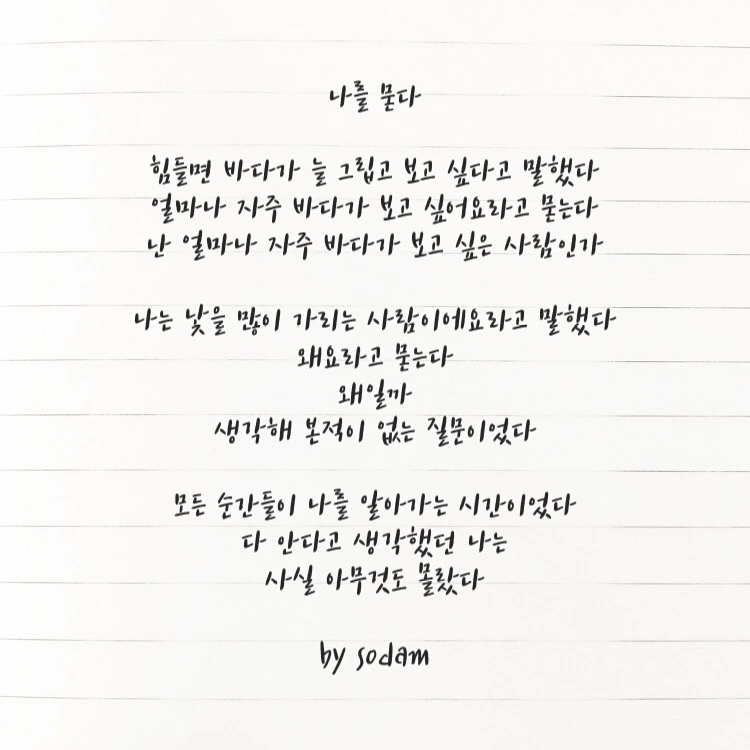 나를 묻다
힘들면 바다가 늘 그립고 보고 싶다고 말했다
얼마나 자주 바다가 보고 싶어요라고 묻는다
난 얼마나 자주 바다가 보고 싶은 사람인가
나는 낯을 많이 가리는 사람이에요라고 말했다
왜요라고 묻는다
왜일까
생각해 본적이 없는 질문이었다
모든 순간들이 나를 알아가는 시간이었다
다 안다고 생각했던 나는
사실 아무것도 몰랐다
by sodam